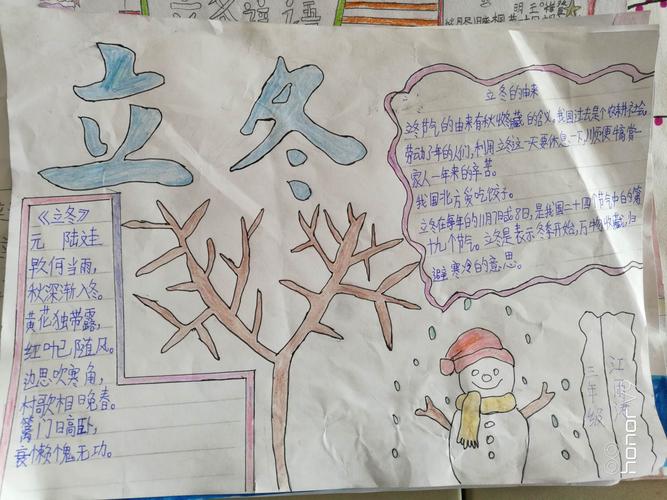 立冬谚语
立冬
《立冬》
元 陆娃
旱久何当雨,
秋深渐入冬。
黄花独带露,
红叶已随风。
边思吹寒角,
村歌相晚春。
篱门日高卧,
衰懒愧无功。
立冬的由来
立冬节气的由来有秋收冬藏的含义,我国过去是个农耕社会,
劳动了年的人们,利用立冬这一天要休息一下,顺便犒赏一
家人一年来的辛苦。
我国北方爱吃饺子。
立冬在每年的11月7日或8日,是我国二十四个节气中的第
十九个节气。立冬是表示冬季开始,万物收藏,归
避寒冷的意思。
三年级
江雨
honor